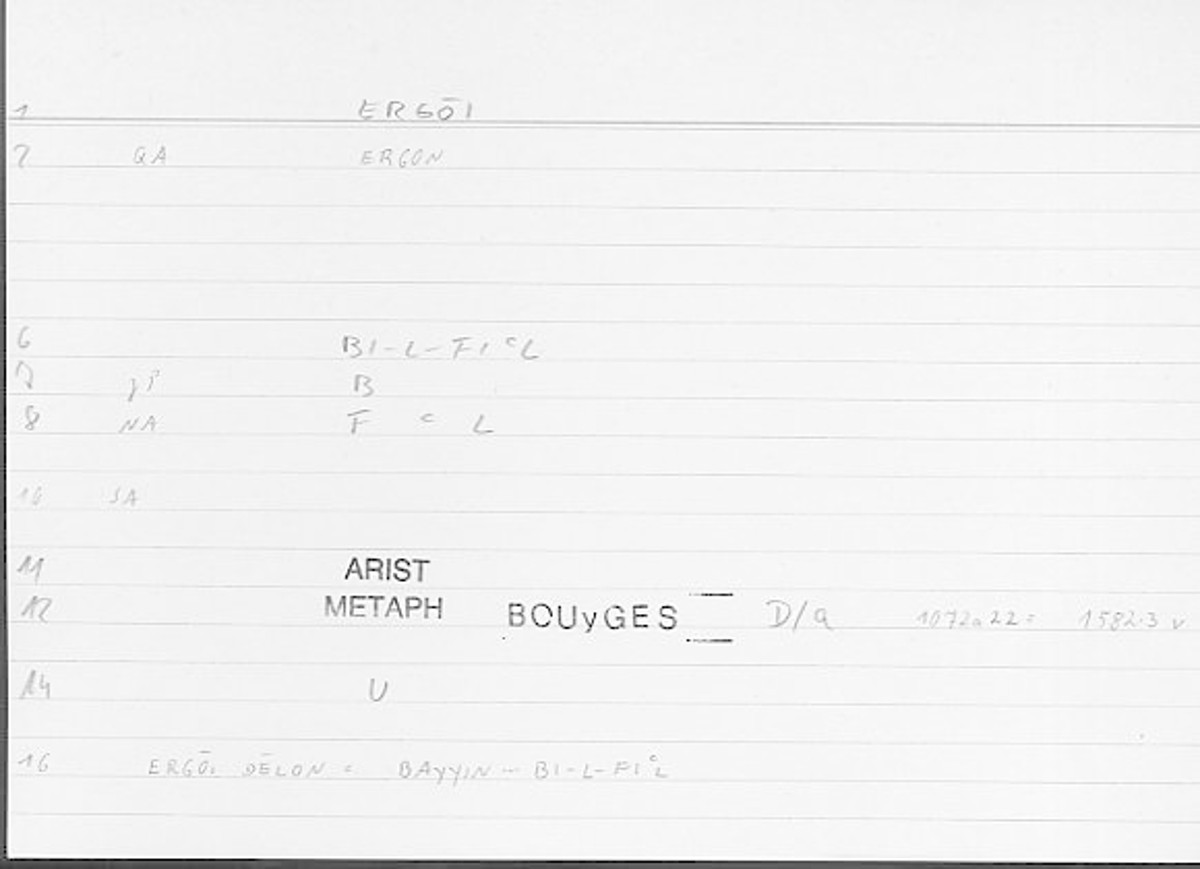 1 ERGŌI
2 QA ERGON
6 BI-L-FIᶜL
7 B
8 NA F ᶜ L
10 SA
11 ARIST
12 METAPH BOUyGES D/a 1072a22= 1582.3 v
14 U
16 ERGŌI DĒLON = BAyyIN -- BI-L-FIᶜL